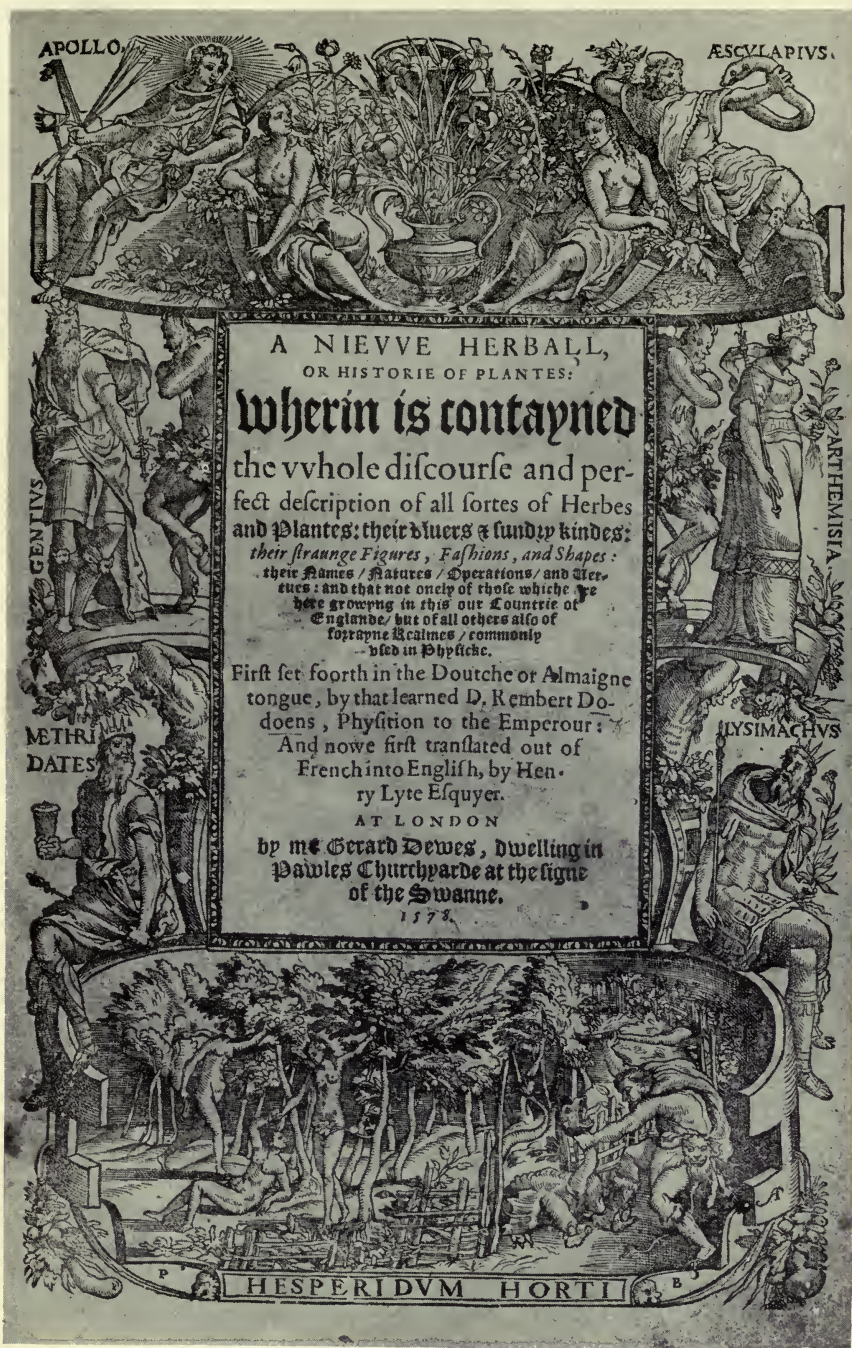 APOLLO.
ÆSCVLAPIVS.
A NIEVVE HERBALL,
OR HISTORIE OF PLANTES:
wherin is contayned
the vvhole diſcourſe and per-
fect deſcription of all ſortes of Herbes
and Plantes: their diuers & ſundry kindes:
their ſtraunge Figures, Faſhions, and Shapes:
their Names / Natures / Operations / and Ver-
tues: and that not onely of thoſe whiche are
here growyng in this our Countrie of
Englande / but of all others alſo of
forrayne Realmes / commonly
vſed in Phyſicke.
Firſt ſet foorth in the Doutche or Almaigne
tongue, by that learned D. Rembert Do-
doens, Phyſition to the Emperour:
And nowe firſt tranſlated out of
French into Engliſh, by Hen-
ry Lyte Eſquyer.
AT LONDON
by me Gerard Dewes, dwelling in
Pawles Churchyarde at the ſigne
of the Swanne.
1578.
GENTIVS
ARTHEMISIA
METHRI
DATES
LYSIMACHVS
A
P
B
HESPERIDVM HORTI